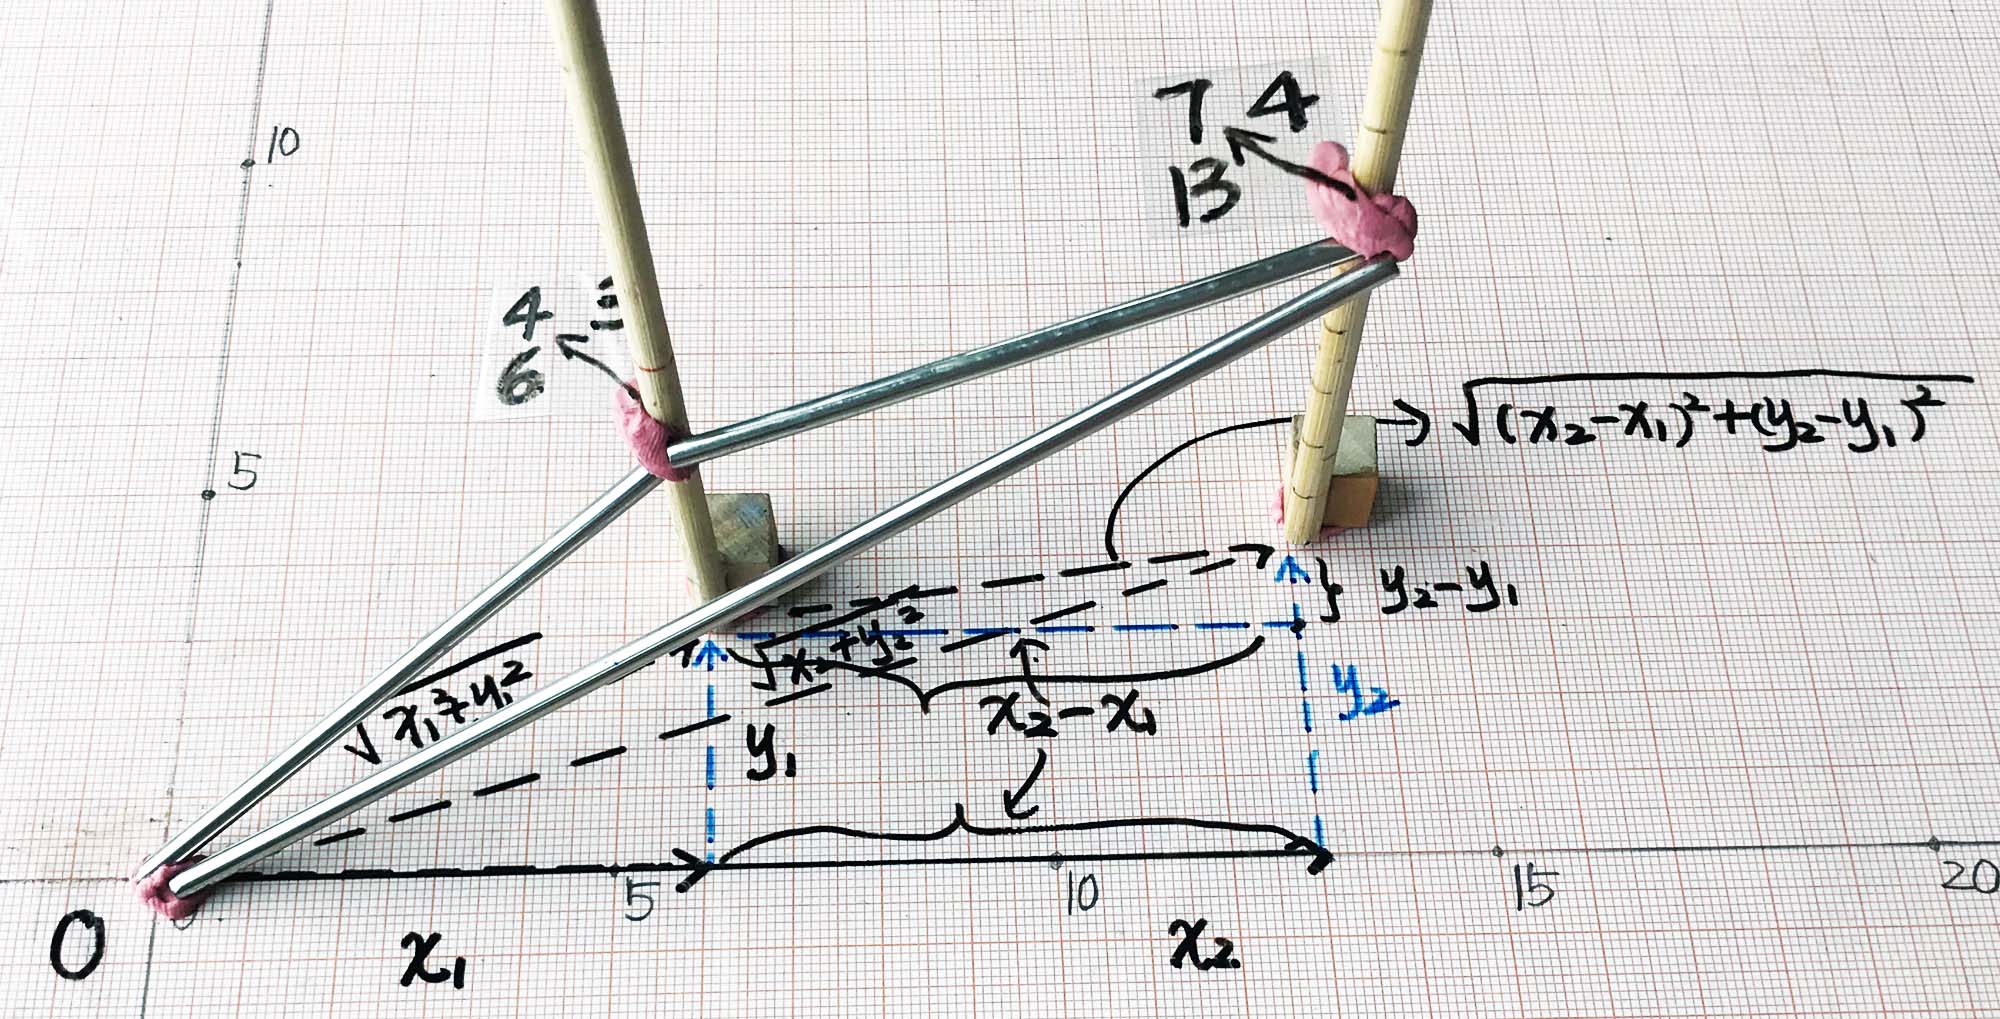 10
7 4
13
4
6
√(x₂-x₁)²+(y₂-y₁)²
5
y₂-y₁
√x₂+y₂²
√x₁²+y₁²
y₂
x₂-x₁
y₁
5
10
15
20
O
x₁
x₂